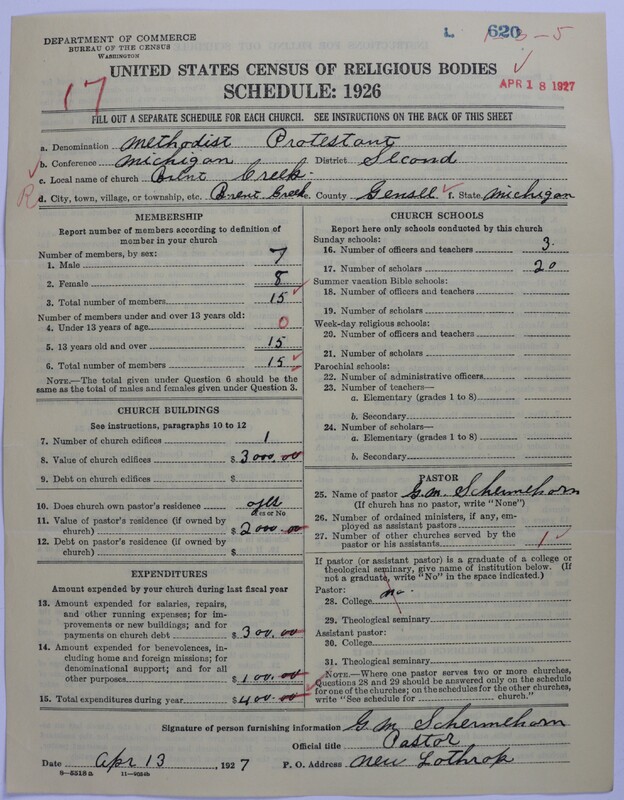 DEPARTMENT OF COMMERCE
BUREAU OF THE CENSUS
WASHINGTON
L 620
17
APR 18 1927
UNITED STATES CENSUS OF RELIGIOUS BODIES
SCHEDULE: 1926
FILL OUT A SEPARATE SCHEDULE FOR EACH CHURCH. SEE INSTRUCTIONS ON THE BACK OF THIS SHEET
a. Denomination Methodist Protestant
b. Conference Michigan District Second
c. Local name of church Brent Creek.
R d. City, town, village, or township, etc. Brent Creek e. County Gensee f. State Michigan
MEMBERSHIP
Report number of members according to definition of
member in your church
Number of members, by sex:
1. Male 7
2. Female 8
3. Total number of members 15
Number of members under and over 13 years old:
4. Under 13 years of age 0
5. 13 years old and over 15
6. Total number of members 15
NOTE.—The total given under Question 6 should be the
same as the total of males and females given under Question 3.
CHURCH BUILDINGS
See instructions, paragraphs 10 to 12
7. Number of church edifices 1
8. Value of church edifices $ 3000.00
9. Debt on church edifices $
10. Does church own pastor's residence yes
Yes or No
11. Value of pastor's residence (if owned by
church) $ 2000.00
12. Debt on pastor's residence (if owned by
church) $
EXPENDITURES
Amount expended by your church during last fiscal year
13. Amount expended for salaries, repairs,
and other running expenses; for im-
provements or new buildings; and for
payments on church debt $ 300.00
14. Amount expended for benevolences, in-
cluding home and foreign missions; for
denominational support; and for all
other purposes $ 100.00
15. Total expenditures during year $ 400.00
CHURCH SCHOOLS
Report here only schools conducted by this church
Sunday schools:
16. Number of officers and teachers 3.
17. Number of scholars 20
Summer vacation Bible schools:
18. Number of officers and teachers
19. Number of scholars
Week-day religious schools:
20. Number of officers and teachers
21. Number of scholars
Parochial schools:
22. Number of administrative officers
23. Number of teachers—
a. Elementary (grades 1 to 8)
b. Secondary
24. Number of scholars—
a. Elementary (grades 1 to 8)
b. Secondary
PASTOR
25. Name of pastor G. M. Schermehorn
(If church has no pastor, write "None")
26. Number of ordained ministers, if any, em-
ployed as assistant pastors
27. Number of other churches served by the
pastor or his assistants 1
If pastor (or assistant pastor) is a graduate of a college or
theological seminary, give name of institution below. (If
not a graduate, write "No" in the space indicated.)
Pastor:
28. College no.
29. Theological seminary
Assistant pastor:
30. College
31. Theological seminary
NOTE.—Where one pastor serves two or more churches,
Questions 28 and 29 should be answered only on the schedule
for one of the churches; on the schedules for the other churches,
write "See schedule for church."
Signature of person furnishing information G. M. Schermehorn
Official title Pastor
Date Apr 13, 1927 P. O. Address New Lothrop